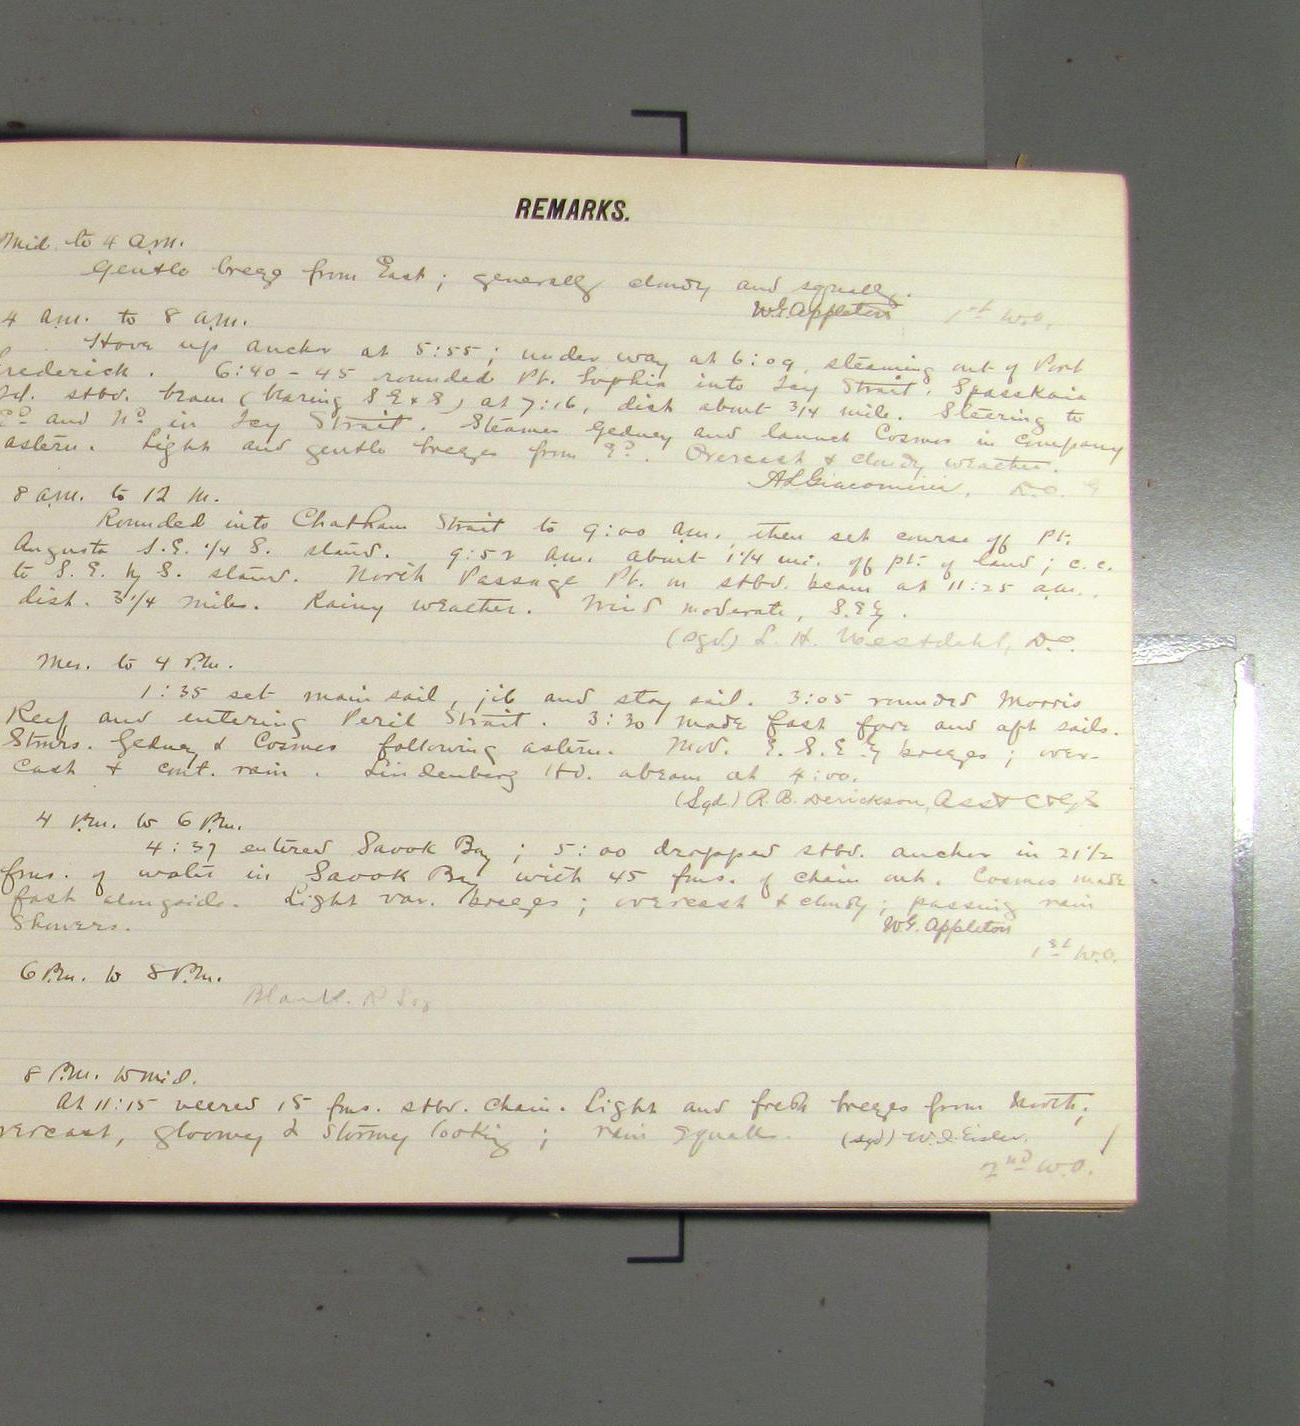 REMARKS.
Mid. to 4 a.m.
Gentle breeze from East; generally cloudy and squally.
W.E. Appleton 1st W.O.
4 a.m. to 8 a.m.
Hove up anchor at 5:55; under way at 6:09, steaming out of Port
rederick. 6:40-45 rounded Pt. Sophia into Icy Strait. Spasskaia
Id. stbd. beam (bearing SExS) at 7:16, dist about 3/4 mile. Steering to
Ed and Nd in Icy Strait. Steamer Gedney and launch Cosmos in company
astern. Light and gentle breezes from Ed. Overcast & cloudy weather.
A L Giacomini, D.O.
8 a.m. to 12 m.
Rounded into Chatham Strait to 9:00 a.m., then set course off Pt.
Augusta S.E. 1/4 S. stand. 9:52 a.m. about 1 1/4 mi. off pt. of land; c.c.
to S.E. by S. stand. North Passage Pt. on stbd. beam at 11:25 a.m.,
dist. 3 1/4 miles. Rainy weather. Wind moderate, S.E'y.
(sgd.) L. H. Westdahl, D.O.
Mer. to 4 P.m.
1:35 set main sail, jib and stay sail. 3:05 rounded Morris
Reef and entering Peril Strait. 3:30 made fast fore and aft sails.
Stmrs. Gedney & Cosmos following astern. Mod. E. S.E.'y breezes; over-
cast & cont. rain. Lindenberg Hd. abeam at 4:00.
(Sgd.) R. B. Derickson, Asst C&GS
4 P.m. to 6 P.m.
4:37 entered Saook Bay; 5:00 dropped stbd. anchor in 21 1/2
fms. of water in Saook Bay with 45 fms. of chain out. Cosmos made
fast alongside. Light var. breezes; overcast & cloudy; passing rain
showers. W.E. Appleton
1st W.O.
6 P.m. to 8 P.m.
Blank.
8 P.m. to mid.
At 11:15 veered 15 fms. stbd. chain. Light and fresh breezes from North;
vercast, gloomy & stormy looking; rain squalls. (sgd) W. Eisler.
2nd W.O.